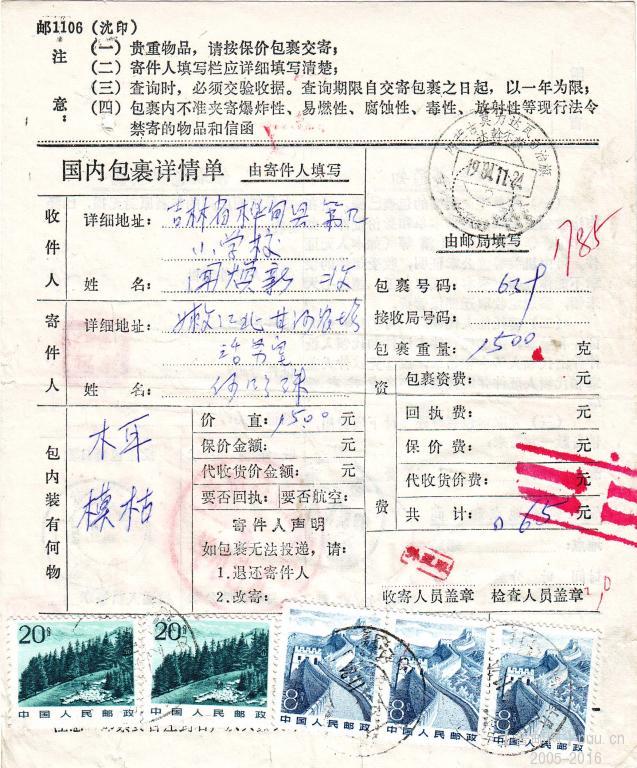 邮1106(沈印)
注意:
(一)贵重物品,请按保价包裹交寄;
(二)寄件人填写栏应详细填写清楚;
(三)查询时,必须交验收据。查询期限自交寄包裹之日起,以一年为限;
(四)包裹内不准夹寄爆炸性、易燃性、腐蚀性、毒性、放射性等现行法令
禁寄的物品和信函
国内包裹详情单 由寄件人填写
收件人
详细地址:吉林省桦甸县第九
小学校
姓名:闻焕新 收
寄件人
详细地址:嫩江北甘河农场
姓名:
包内装有何物
木耳
模枯
价 直:1500元
保价金额: 元
代收货价金额: 元
要否回执: 要否航空:
寄件人声明
如包裹无法投递,请:
1.退还寄件人
2.改寄:
1984.11.24
由邮局填写
1785
包裹号码:639
接收局号码:
包裹重量:1500克
资费
包裹资费: 元
回执费: 元
保价费: 元
代收货价费: 元
共计:0.65元
收寄人员盖章 检查人员盖章
20分
中国人民邮政
20分
中国人民邮政
8分
中国人民邮政
8分
中国人民邮政
8分
中国人民邮政
2005-2016